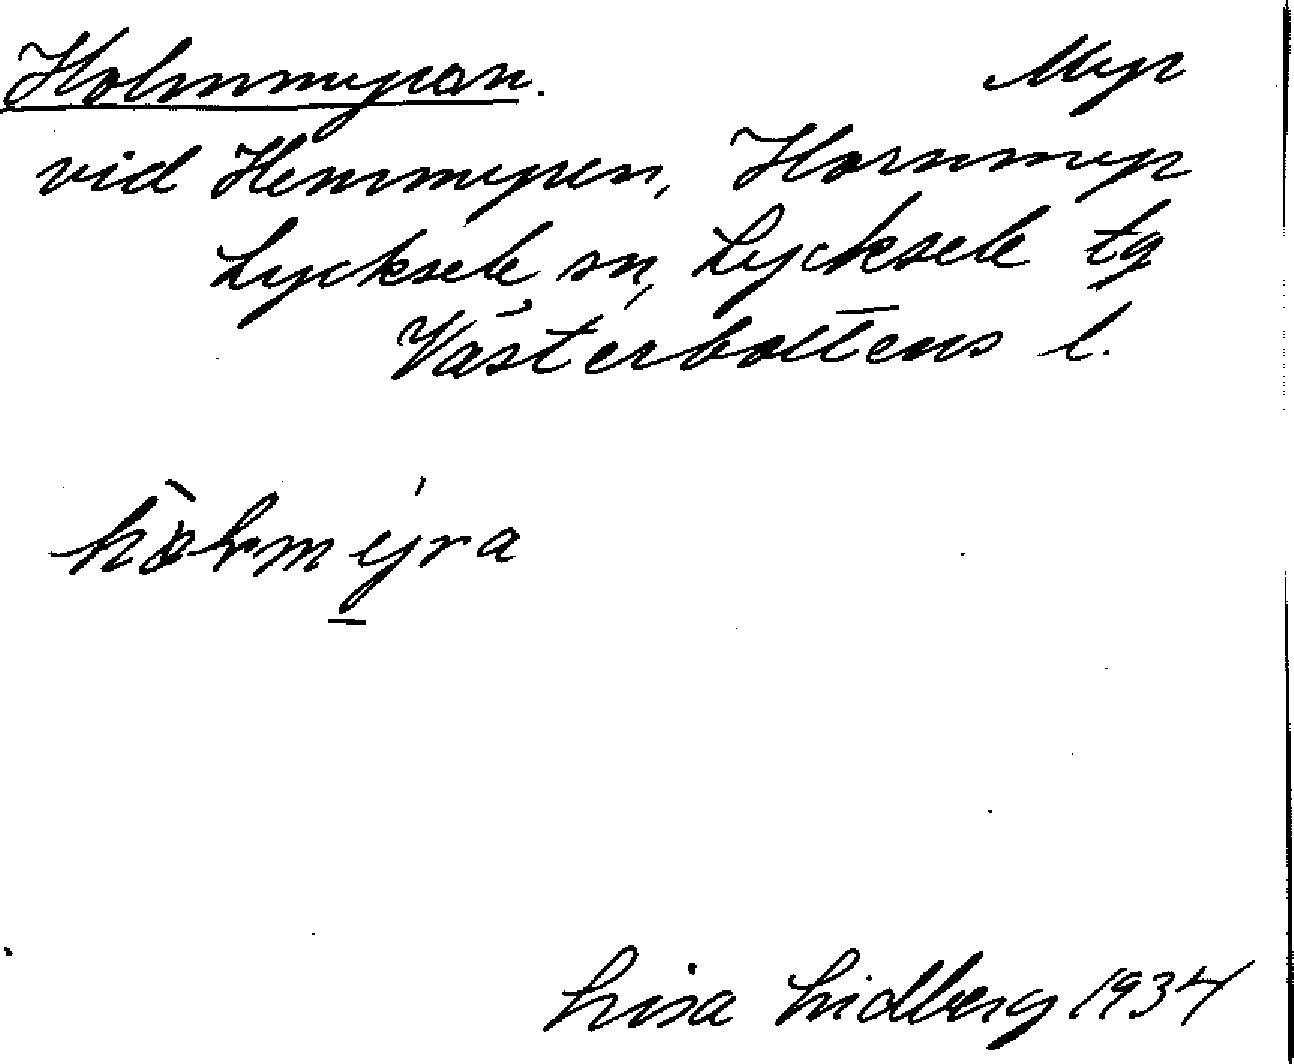 Holmmyran. Myr
vid Hemmyren, Hornmyr
Lycksele sn, Lycksele tg
Västerbottens l.
Lisa Lidberg 1934